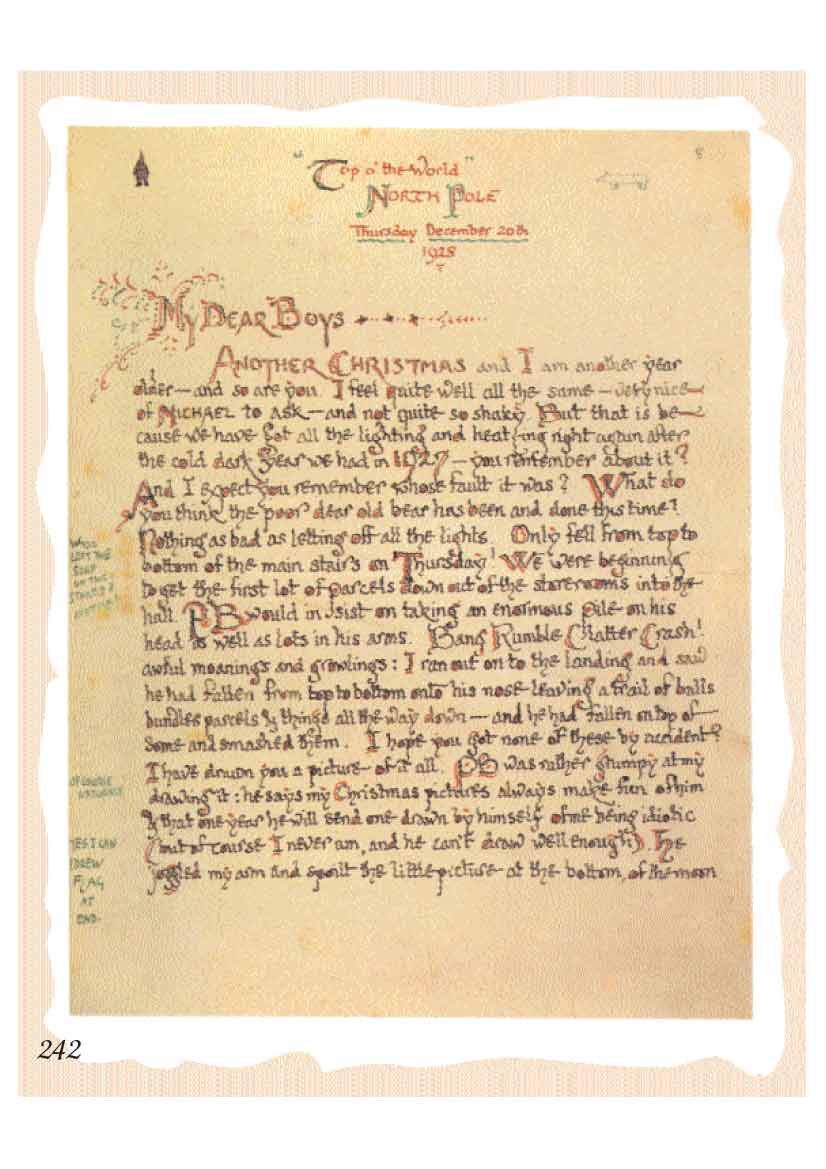 8
"Top o' the World"
NORTH POLE
Thursday December 20th
1928
MY DEAR BOYS
ANOTHER CHRISTMAS and I am another year
older—and so are you. I feel quite well all the same—very nice
of MICHAEL to ask—and not quite so shaky. But that is be-
cause we have got all the lighting and heat-ing right again after
the cold dark year we had in 1927—you remember about it?
And I expect you remember whose fault it was? What do
you think the poor dear old bear has been and done this time?
Nothing as bad as letting off all the lights. Only fell from top to
bottom of the main stairs on Thursday! We were beginning
to get the first lot of parcels down out of the storerooms into the
hall. PB would insist on taking an enormous pile on his
head as well as lots in his arms. Bang Rumble Clatter Crash!
awful moanings and growlings: I ran out on to the landing and saw
he had fallen from top to bottom onto his nose leaving a trail of balls
bundles parcels & things all the way down—and he had fallen on top of
some and smashed them. I hope you got none of these by accident?
I have drawn you a picture of it all. PB was rather grumpy at my
drawing it: he says my Christmas pictures always make fun of him
& that one year he will send one drawn by himself of me being idiotic
(but of course I never am, and he can't draw well enough). He
joggled my arm and spoilt the little picture at the bottom, of the moon
WHO
LEFT THE
SOAP
ON THE
STAIRS?
NOT ME!
OF COURSE
NATURALLY
YES I CAN
I DREW
FLAG
AT
END.
242